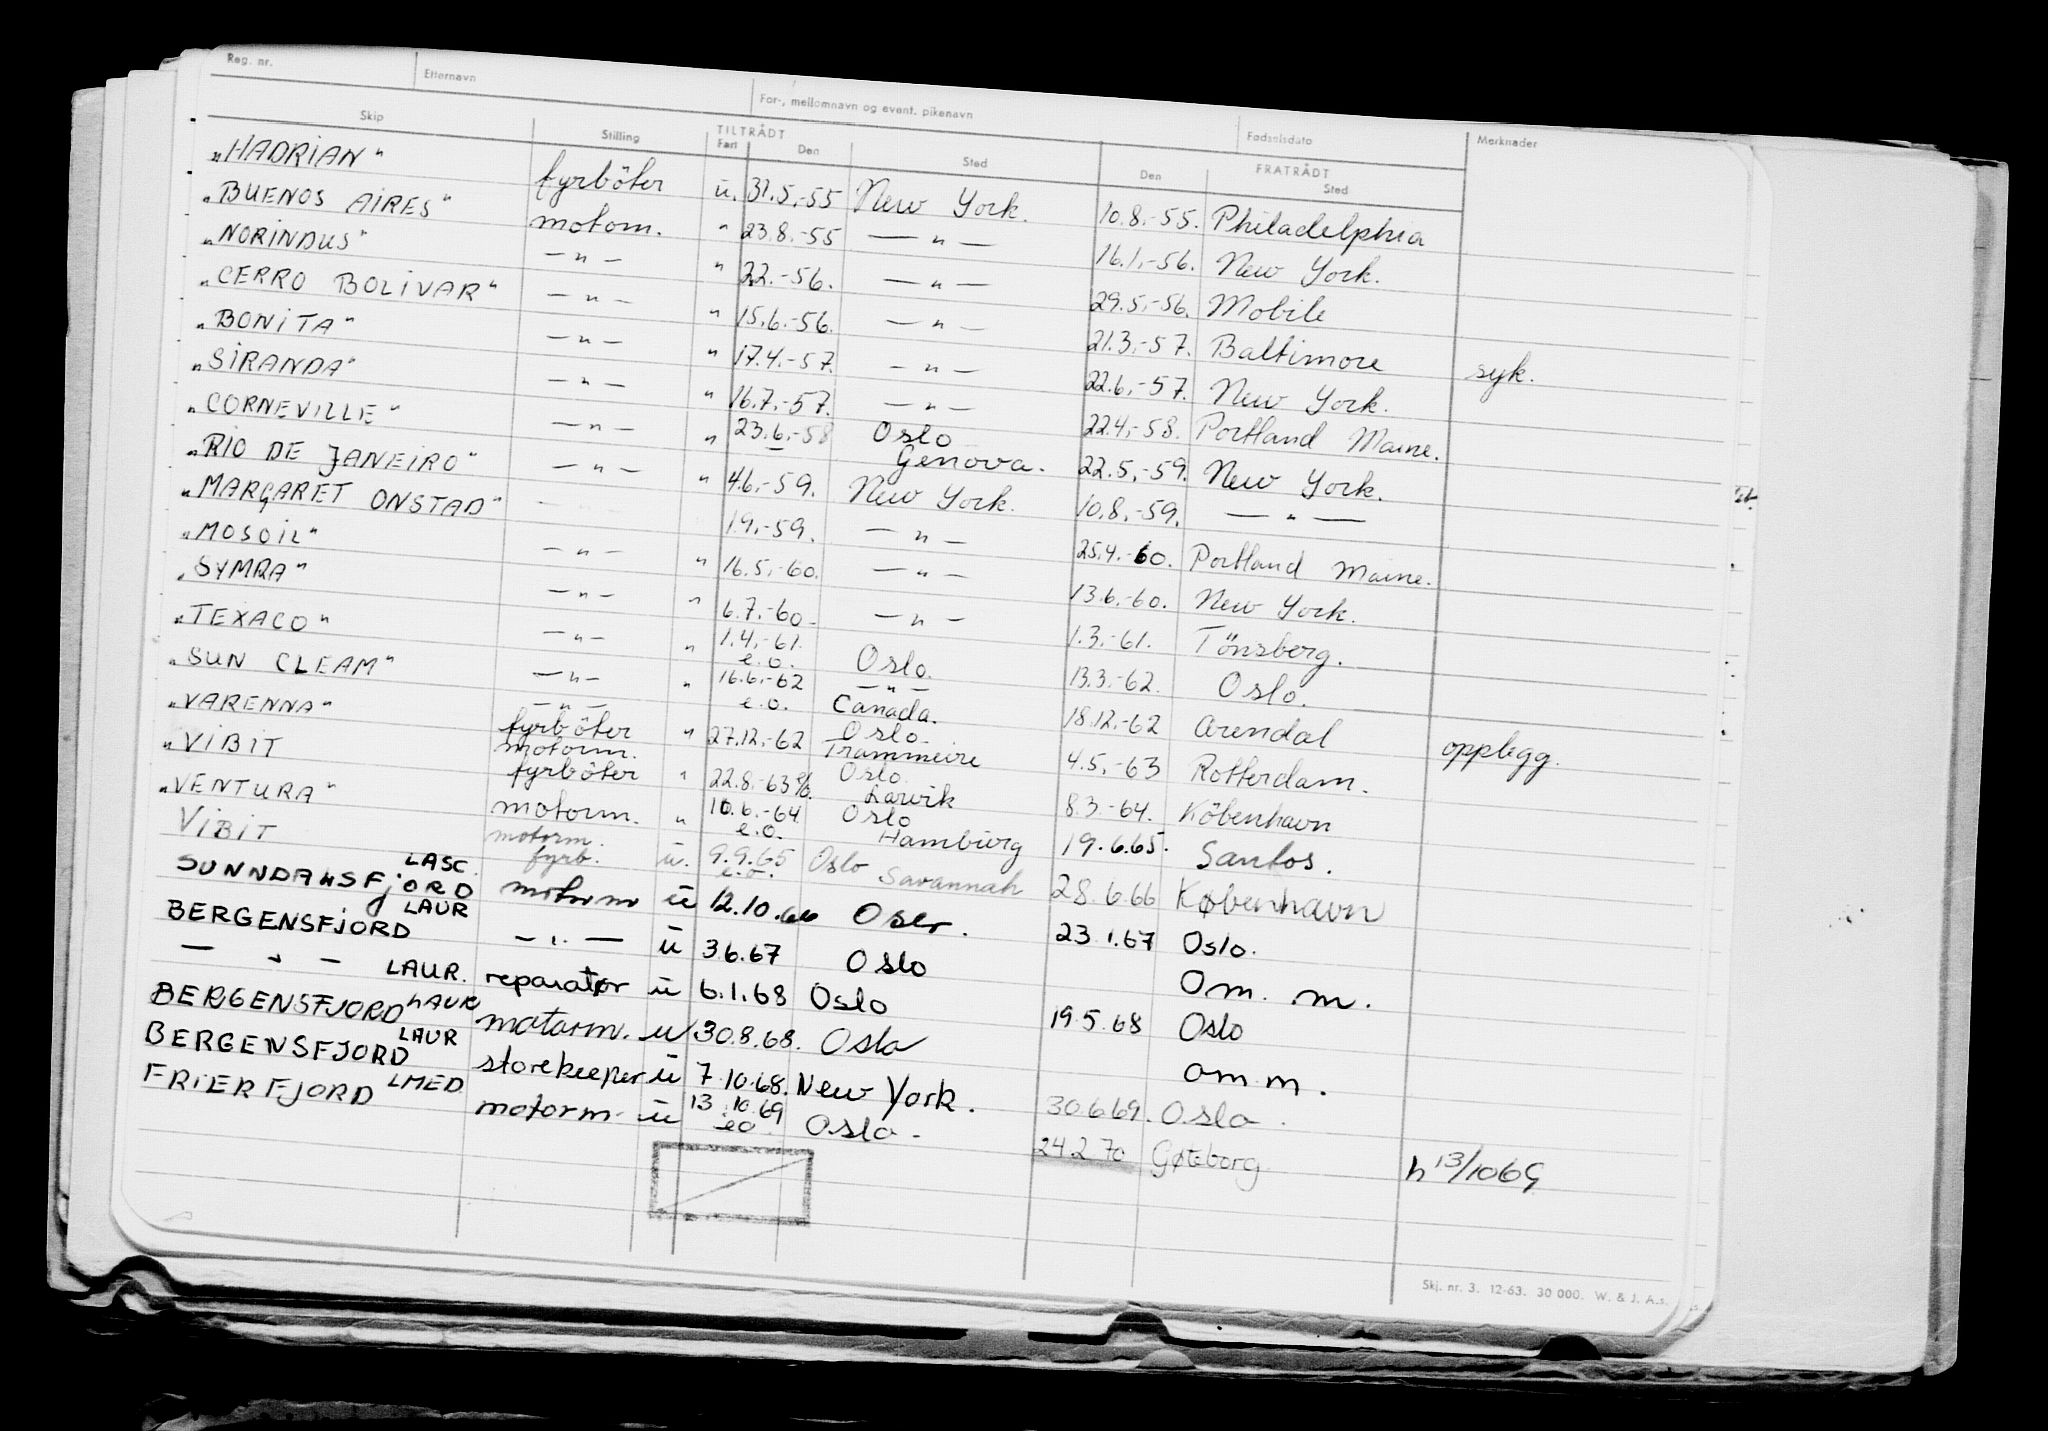 Reg. nr. Etternavn For-, mellomnavn og event. pikenavn Fødselsdato Merknader
Skip Stilling TILTRÅDT FRATRÅDT
Fart Den Sted Den Sted
"HADRIAN" fyrböter ü. 31.5.-55 New York. 10.8.-55. Philadelphia
"BUENOS AIRES" motom. " 23.8.-55 — " — 16.1.-56. New York.
"NORINDUS" — " — " 22.-56. — " — 29.5.-56. Mobile
"CERRO BOLIVAR" — " — " 15.6.-56. — " — 21.3.-57. Baltimore syk.
"BONITA" — " — " 17.4.-57. — " — 22.6.-57. New York.
"SIRANDA" — " — " 16.7.-57. — " — 22.4.-58. Portland Maine.
"CORNEVILLE" — " — " 23.6.-58 Oslo Genova. 22.5.-59. New York.
"RIO DE JANEIRO" — " — " 4.6.-59. New York. 10.8.-59. — " —
"MARGARET ONSTAD" 1.9.-59. — " — 25.4.-60. Portland Maine.
"MOSOIL" — " — " 16.5.-60. — " — 13.6.-60. New York.
"SYMRA" — " — " 6.7.-60. — " — 1.3.-61. Tönsberg.
"TEXACO" — " — " 1.4.-61. e.o. Oslo. 13.3.-62. Oslo.
"SUN CLEAM" — " — " 16.6.-62 e.o. — " — Canada. 18.12.-62 Arendal opplegg.
"VARENNA" — " — fyrböter " 27.12.-62 Oslo Trammeire 4.5.-63 Rotterdam.
"VIBIT motorm. fyrböter " 22.8.-63 e/o. Oslo Larvik 8.3-64. Köbenhavn
"VENTURA" motorm. " 10.6.-64 e.o. Oslo Hamburg 19.6.65. Santos.
VIBIT motorm. fyrb. ü. 9.9.65 e.o. Oslo Savannah 28.6.66 København
SUNNDAHSFJORD LASC. motorm ü 12.10.66 Oslo. 23.1.67 Oslo.
BERGENSFJORD LAUR — " — ü 3.6.67 Oslo Om. m.
— " — LAUR. reparatør ü 6.1.68 Oslo 19.5.68 Oslo
BERGENSFJORD LAUR motorm. u 30.8.68. Oslo om m.
BERGENSFJORD LAUR storekeeper ü 7.10.68. New York. 30.6.69. Oslo.
FRIERFJORD LMED motorm. ü 13.10.69 eo Oslo. 24.2.70 Gøteborg h 13/1069
Skj. nr. 3. 12-63. 30 000. W. & J. A.s.